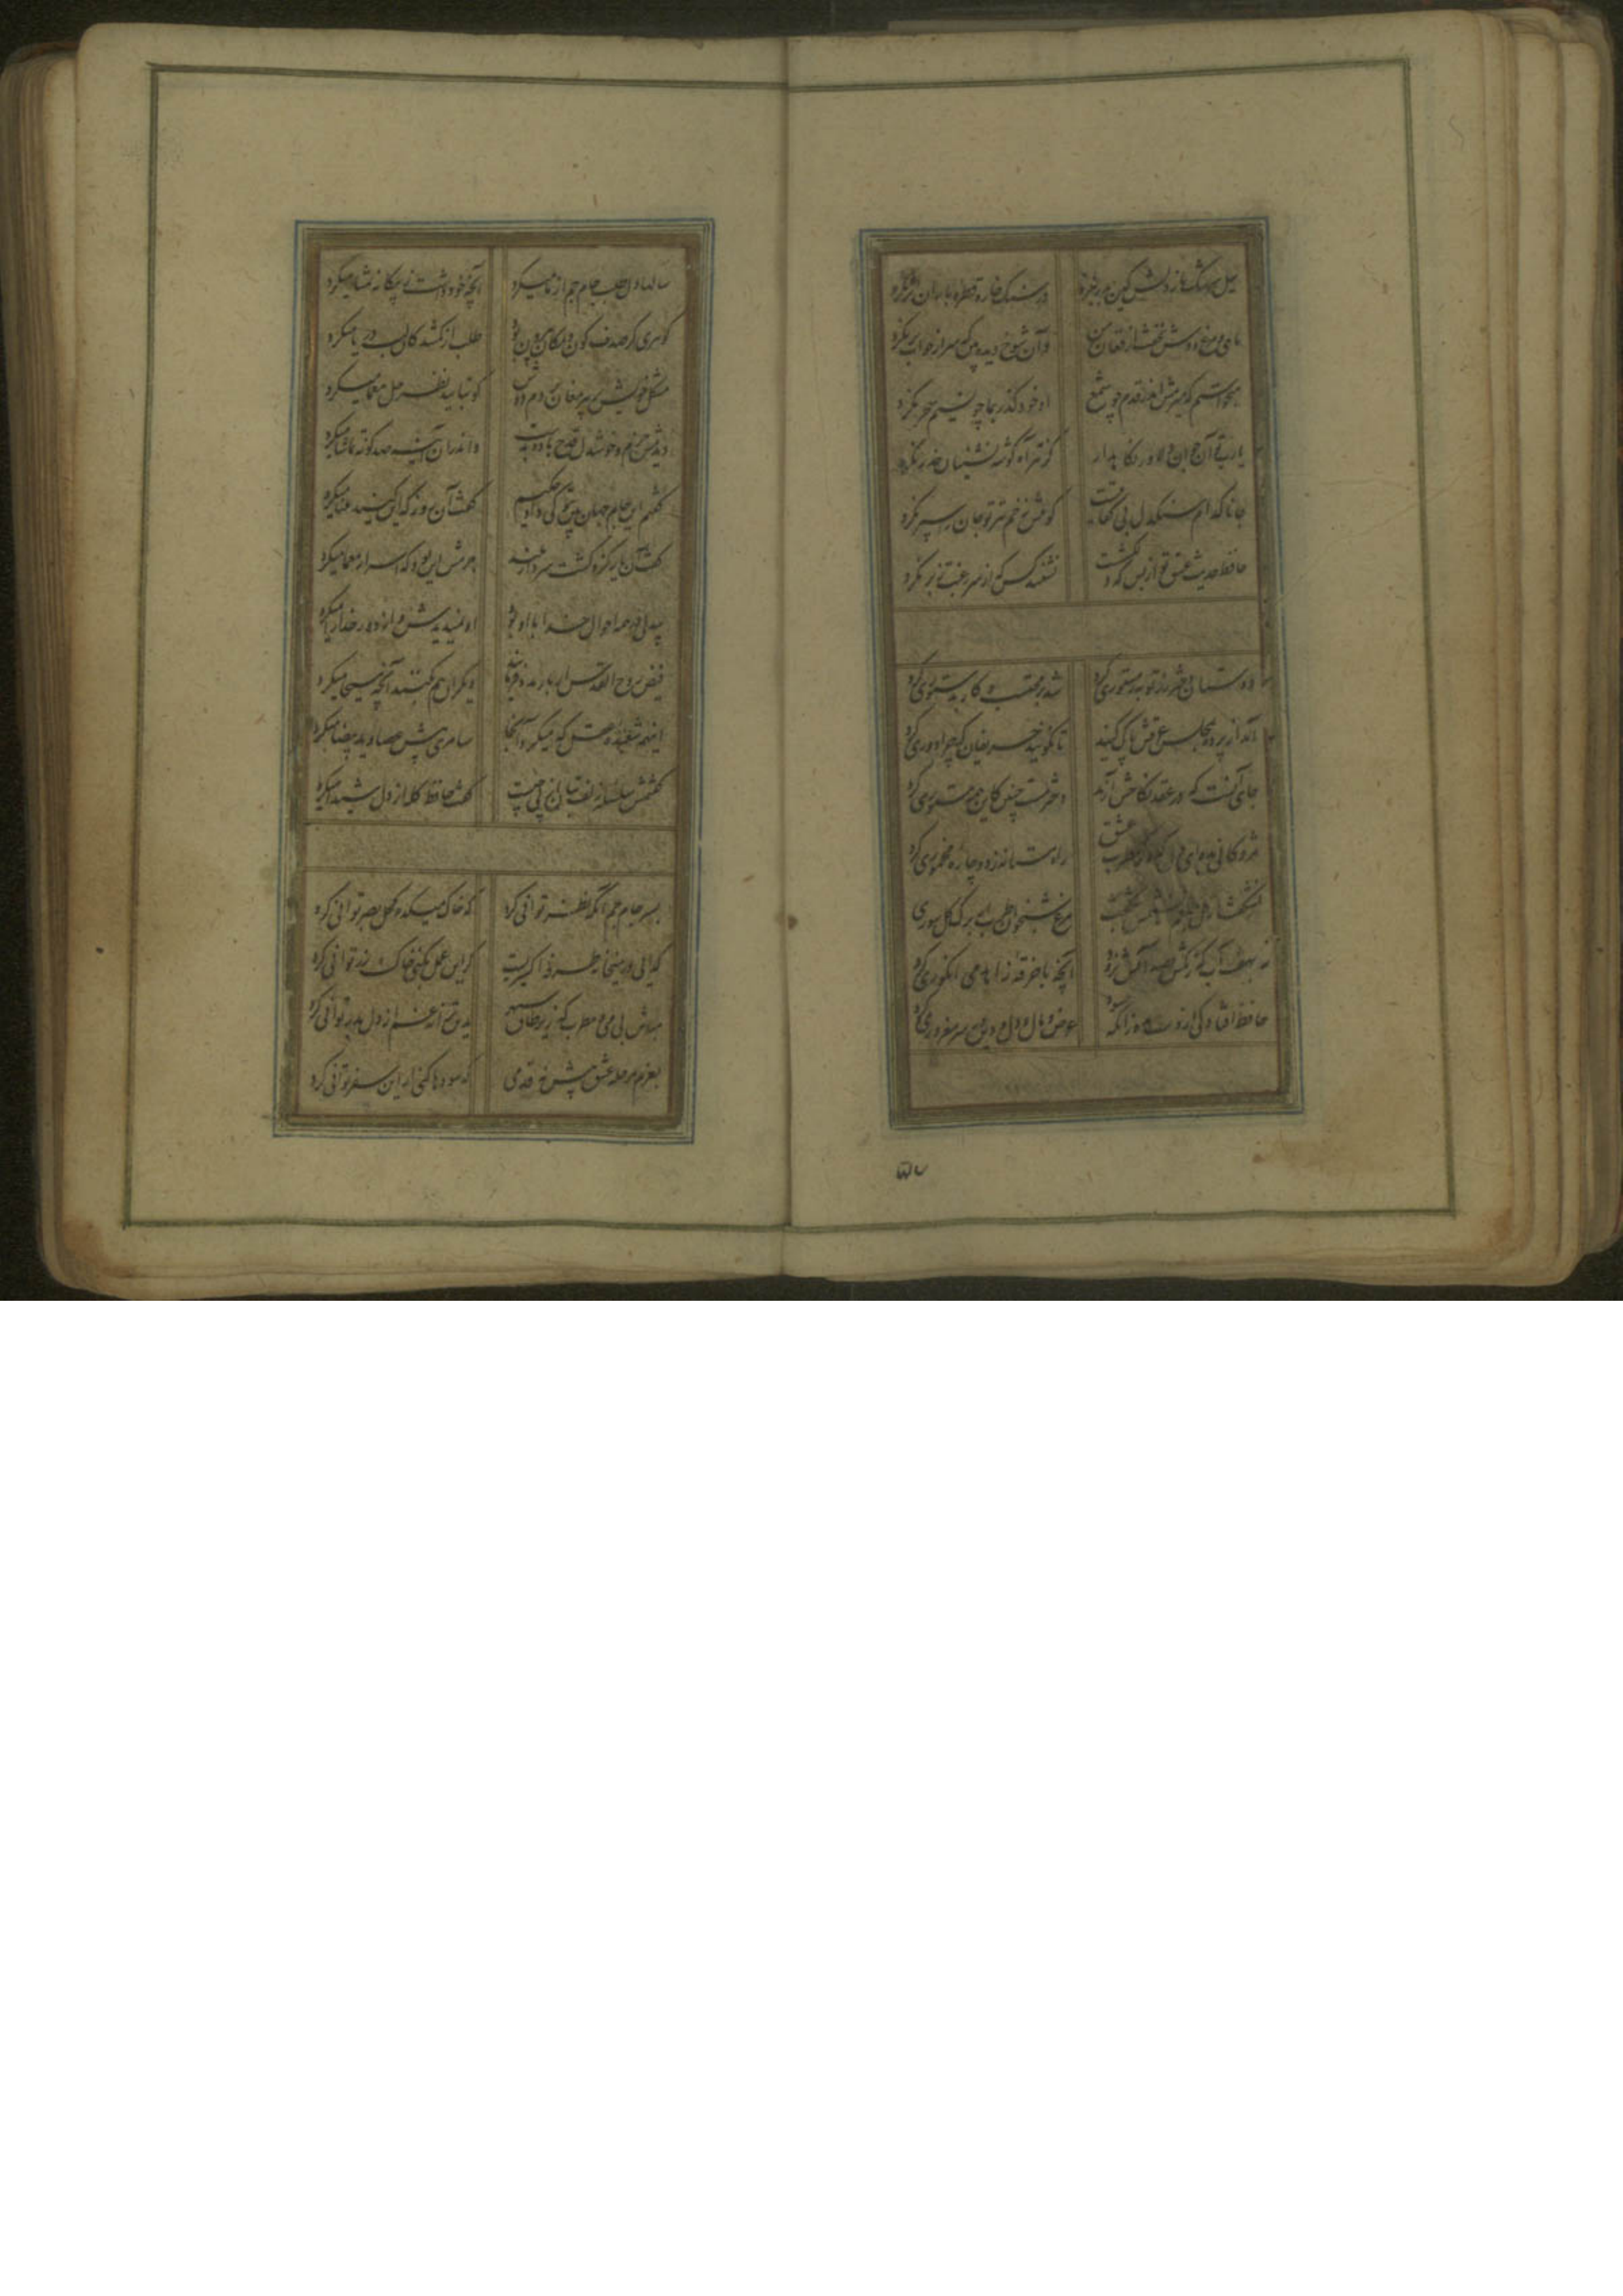 سیل سرشک ما ز دلش کین بدر نبرد
در سنگ خاره قطره باران اثر نکرد
ماهی و مرغ دوش نخفت از فغان من
وان شوخ دیده بین که سر از خواب بر نکرد
میخواستم که میرمش اندر قدم چو شمع
او خود گذر بما چو نسیم سحر نکرد
یا رب تو آن جوان دلاور نگاه دار
کز تیر آه گوشه نشینان حذر نکرد
جانا کدام سنگدل بی کفایتست
کو پیش زخم تیر تو جان را سپر نکرد
حافظ حدیث عشق تو از بس که
نشنید کس که از سر رغبت ز بر نکرد
دوستان دختر رز توبه ز مستوری کرد
شد بر محتسب و کار بدستوری کرد
آمد از پرده بمجلس عرقش پاک کنید
تا نگویند حریفان که چرا دوری کرد
جای آنست که در عقد نکاحش آرند
دختر مست چنین کاین همه مستوری کرد
مژدگانی بده ای دل که دگر مطرب عشق
راه مستانه زد و چاره مخموری کرد
نشکفت
مرغ شبخوان طرب از برگ گل سوری کرد
نه بهفت آب که رنگش بصد آتش نرود
آنچه با خرقه زاهد می انگوری کرد
حافظ افتادگی از دست مده زانکه حسود
عرض و مال و دل و دین در سر مغروری کرد
۵۷
سالها دل طلب جام جم از ما میکرد
آنچه خود داشت ز بیگانه تمنا میکرد
گوهری کز صدف کون و مکان بیرون بود
طلب از گمشدگان لب دریا میکرد
مشکل خویش بر پیر مغان بردم دوش
کو بتایید نظر حل معما میکرد
دیدمش خرم و خوشدل قدح باده بدست
واندران آینه صد گونه تماشا میکرد
گفتم این جام جهان بین بتو کی داد حکیم
گفت آن روز که این گنبد مینا میکرد
گفت آن یار کزو گشت سر دار بلند
جرمش این بود که اسرار هویدا میکرد
بیدلی در همه احوال خدا با او بود
او نمیدیدش و از دور خدا را میکرد
فیض روح القدس ار باز مدد فرماید
دیگران هم بکنند آنچه مسیحا میکرد
اینهمه شعبده عقل که میکرد آنجا
سامری پیش عصا و ید بیضا میکرد
گفتمش سلسله زلف بتان از پی چیست
گفت حافظ گله از دل شیدا میکرد
بسر جام جم آنگه نظر توانی کرد
که خاک میکده کحل بصر توانی کرد
گدایی در میخانه طرفه اکسیریست
گر این عمل بکنی خاک زر توانی کرد
مباش بی می و مطرب که زیر طاق سپهر
بدین ترانه غم از دل بدر توانی کرد
بعزم مرحله عشق پیش نه قدمی
که سودها کنی ار این سفر توانی کرد